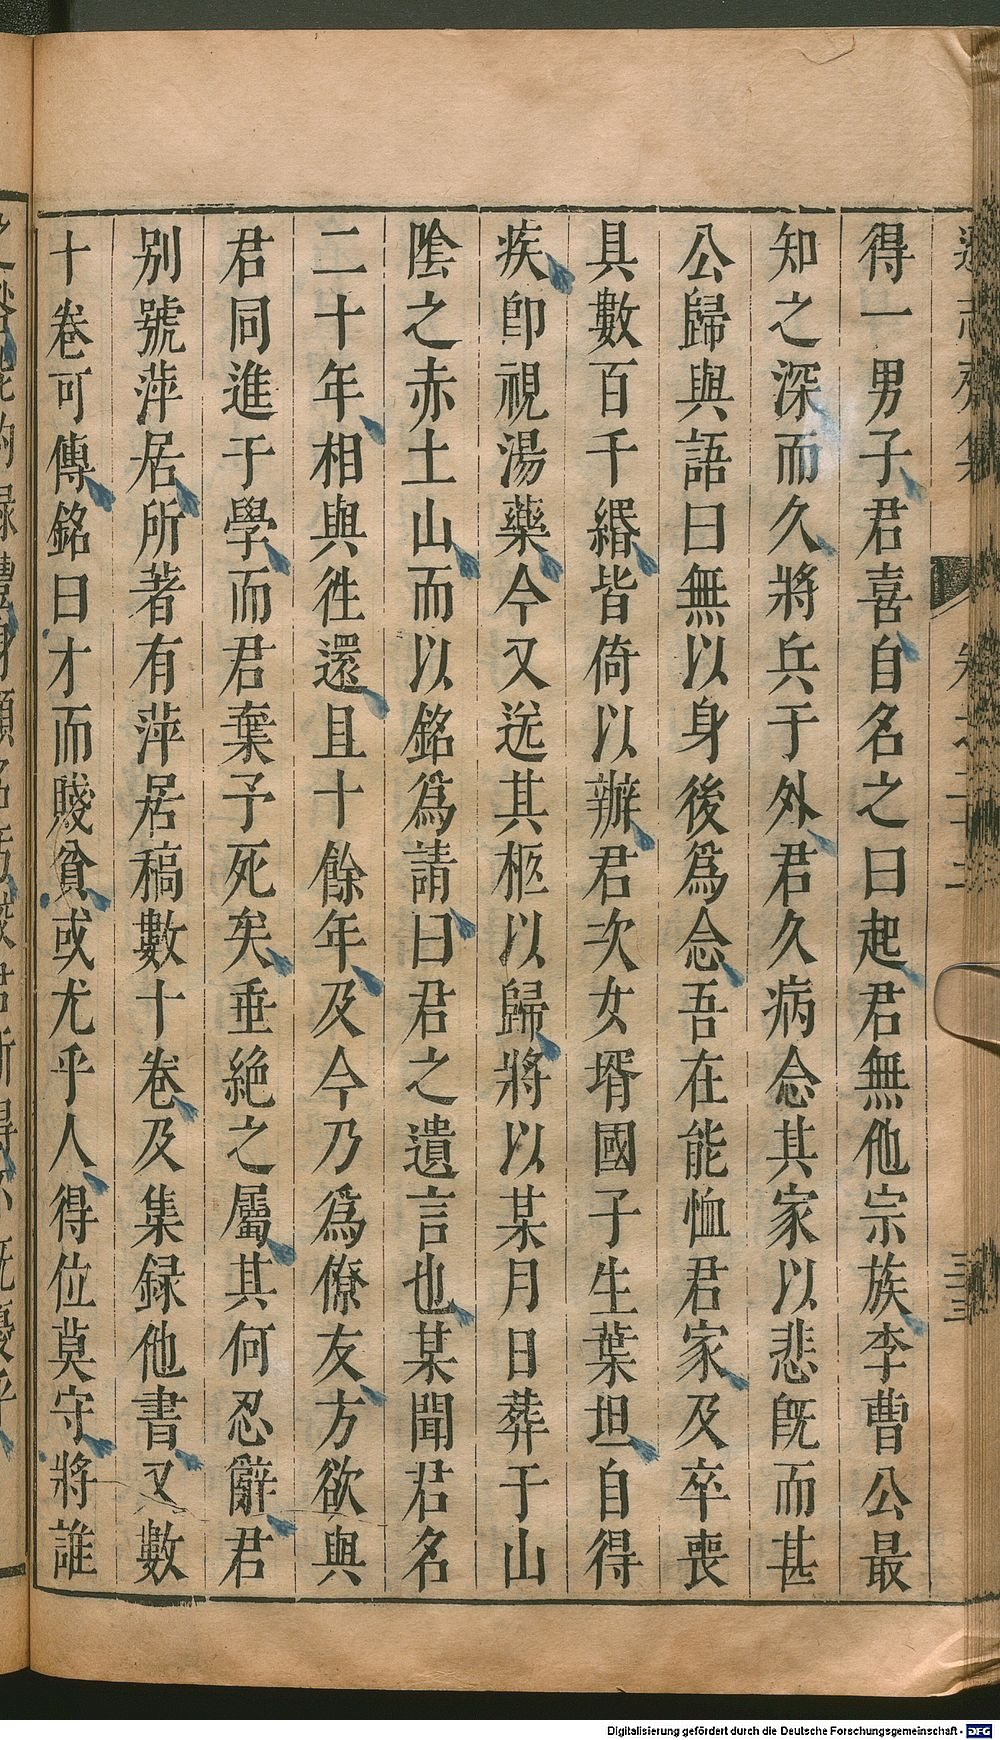 得一男子君喜自名之曰起君無他宗族李曹公最
知之深而久將兵于外君久病念其家以悲旣而甚
公歸與語曰無以身後爲念吾在能恤君家及卒喪
具數百千緡皆倚以辦君次女壻國子生葉坦自得
疾卽視湯藥今又送其柩以歸將以某月日葬于山
陰之赤土山而以銘爲請曰君之遺言也某聞君名
二十年相與徃還且十餘年及今乃爲僚友方欲與
君同進于學而君葉予死矣垂絶之屬其何忍辭君
別號萍居所著有萍居稿數十卷及集録他書又數
十卷可傳銘曰才而賤貧或尤乎人得位莫守將誰
遜志齋集
卷之二十二
三三
Digitalisierung gefördert durch die Deutsche Forschungsgemeinschaft - DFG